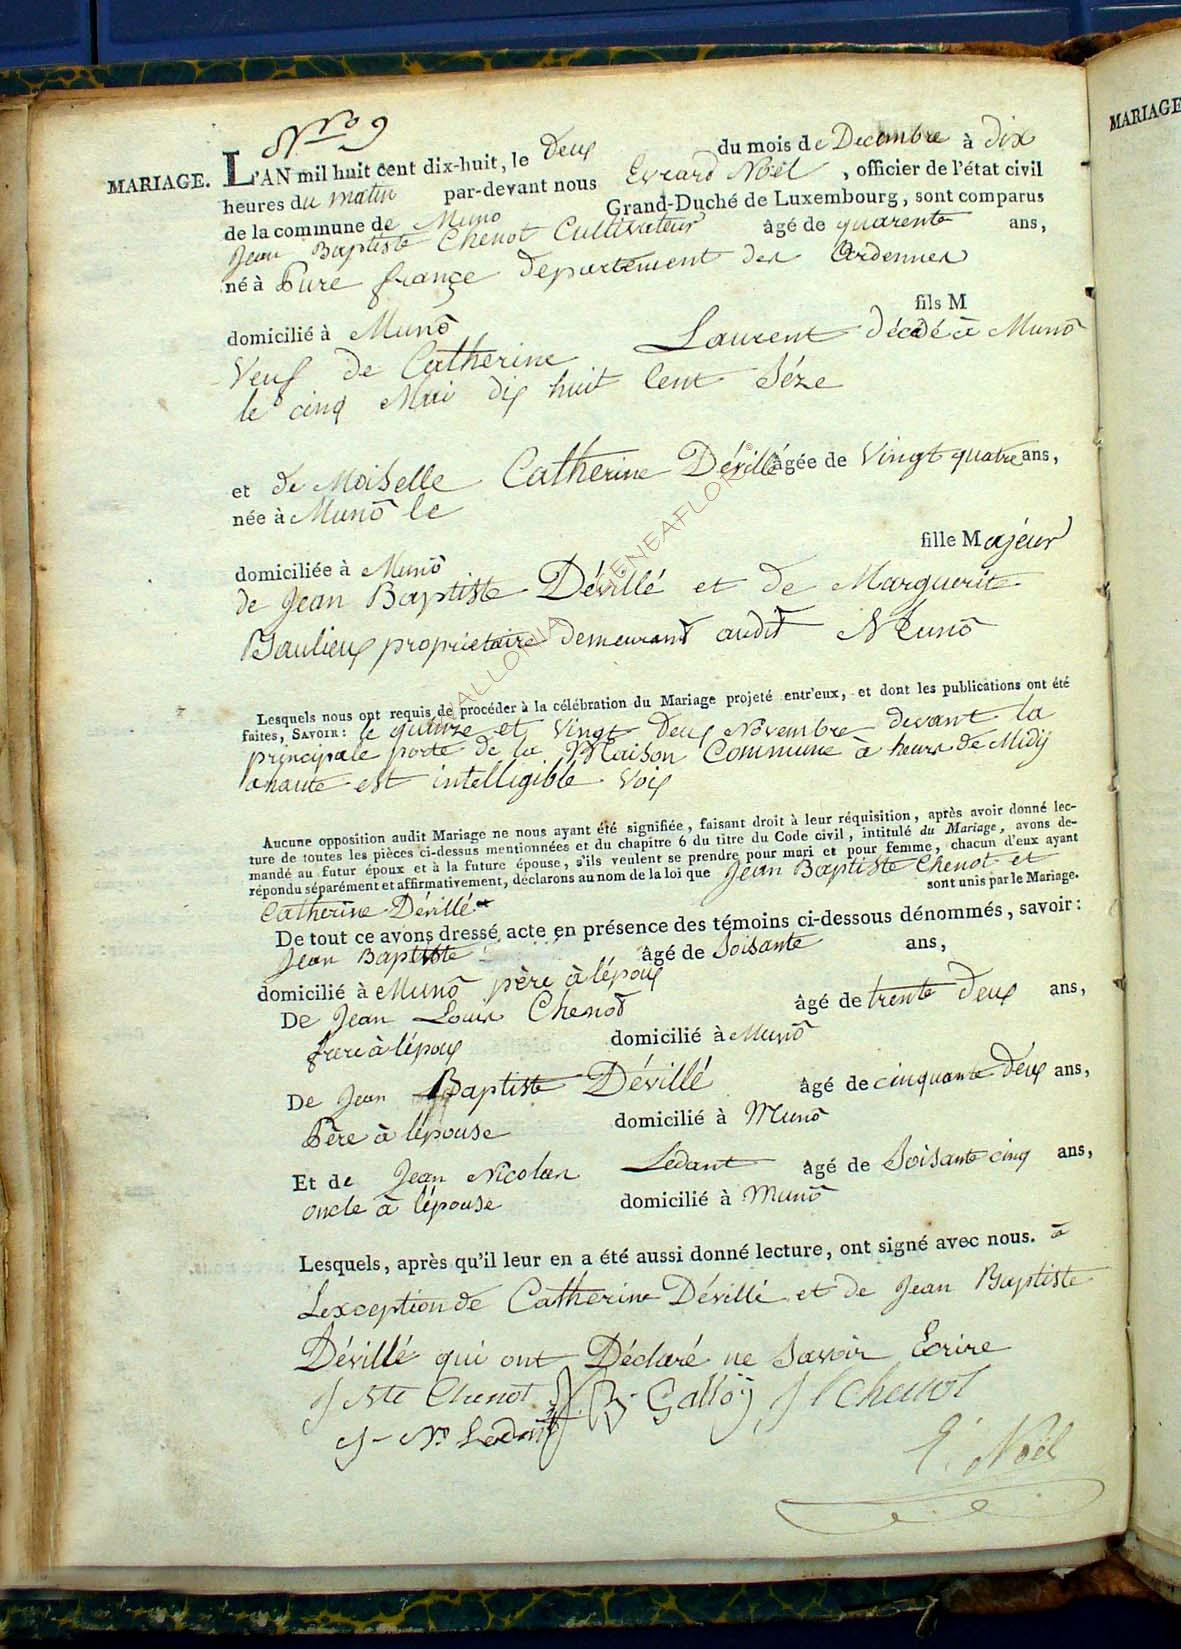 Nro 9
MARIAGE. L'AN mil huit cent dix-huit, le Deux du mois de Decembre à dix
heures du matin par-devant nous Evrard Noël, officier de l'état civil
de la commune de Muno Grand-Duché de Luxembourg, sont comparus
Jean Baptiste Chenot Cultivateur âgé de quarente ans,
né à Pure françe département des Ardennes
domicilié à Muno fils M
Veuf de Catherine Laurent décédé à Muno
le cinq Mai dix huit Cent Séze
et de Moiselle Catherine Dévillé âgée de Vingt quatre ans,
née à Muno le
domiciliée à Muno fille Majeur
de Jean Baptiste Dévillé et de Marguerite
Baulieux propriétaire demeurant audit Muno
Lesquels nous ont requis de procéder à la célébration du Mariage projeté entr'eux, et dont les publications ont été
faites, SAVOIR: le quinze et Vingt Deux Novembre devant la
principale porte de la Maison Commune à heure de Midy
a haute est intelligible Voix
Aucune opposition audit Mariage ne nous ayant été signifiée, faisant droit à leur réquisition, après avoir donné lec-
ture de toutes les pièces ci-dessus mentionnées et du chapitre 6 du titre du Code civil, intitulé du Mariage, avons de-
mandé au futur époux et à la future épouse, s'ils veulent se prendre pour mari et pour femme, chacun d'eux ayant
répondu séparément et affirmativement, déclarons au nom de la loi que Jean Baptiste Chenot et
Catherine Dévillé sont unis par le Mariage.
De tout ce avons dressé acte en présence des témoins ci-dessous dénommés, savoir:
Jean Baptiste âgé de Soisante ans,
domicilié à Muno père à lépoux
De Jean Louis Chenot âgé de trente Deux ans,
frere à lépoux domicilié à Muno
De Jean Baptiste Dévillé âgé de cinquante Deux ans,
Père à lépouse domicilié à Muno
Et de Jean Nicolas Ledant âgé de Soisante cinq ans,
oncle à lépouse domicilié à Muno
Lesquels, après qu'il leur en a été aussi donné lecture, ont signé avec nous. à
Lexception de Catherine Dévillé et de Jean Baptiste
Dévillé qui ont Déclaré ne Savoir Ecrire
J Bte Chenot J B Galloÿ J L chenot
J - No Ledant
E. Noël
MARIAGE
WALLONIA GENEAFLOR ©